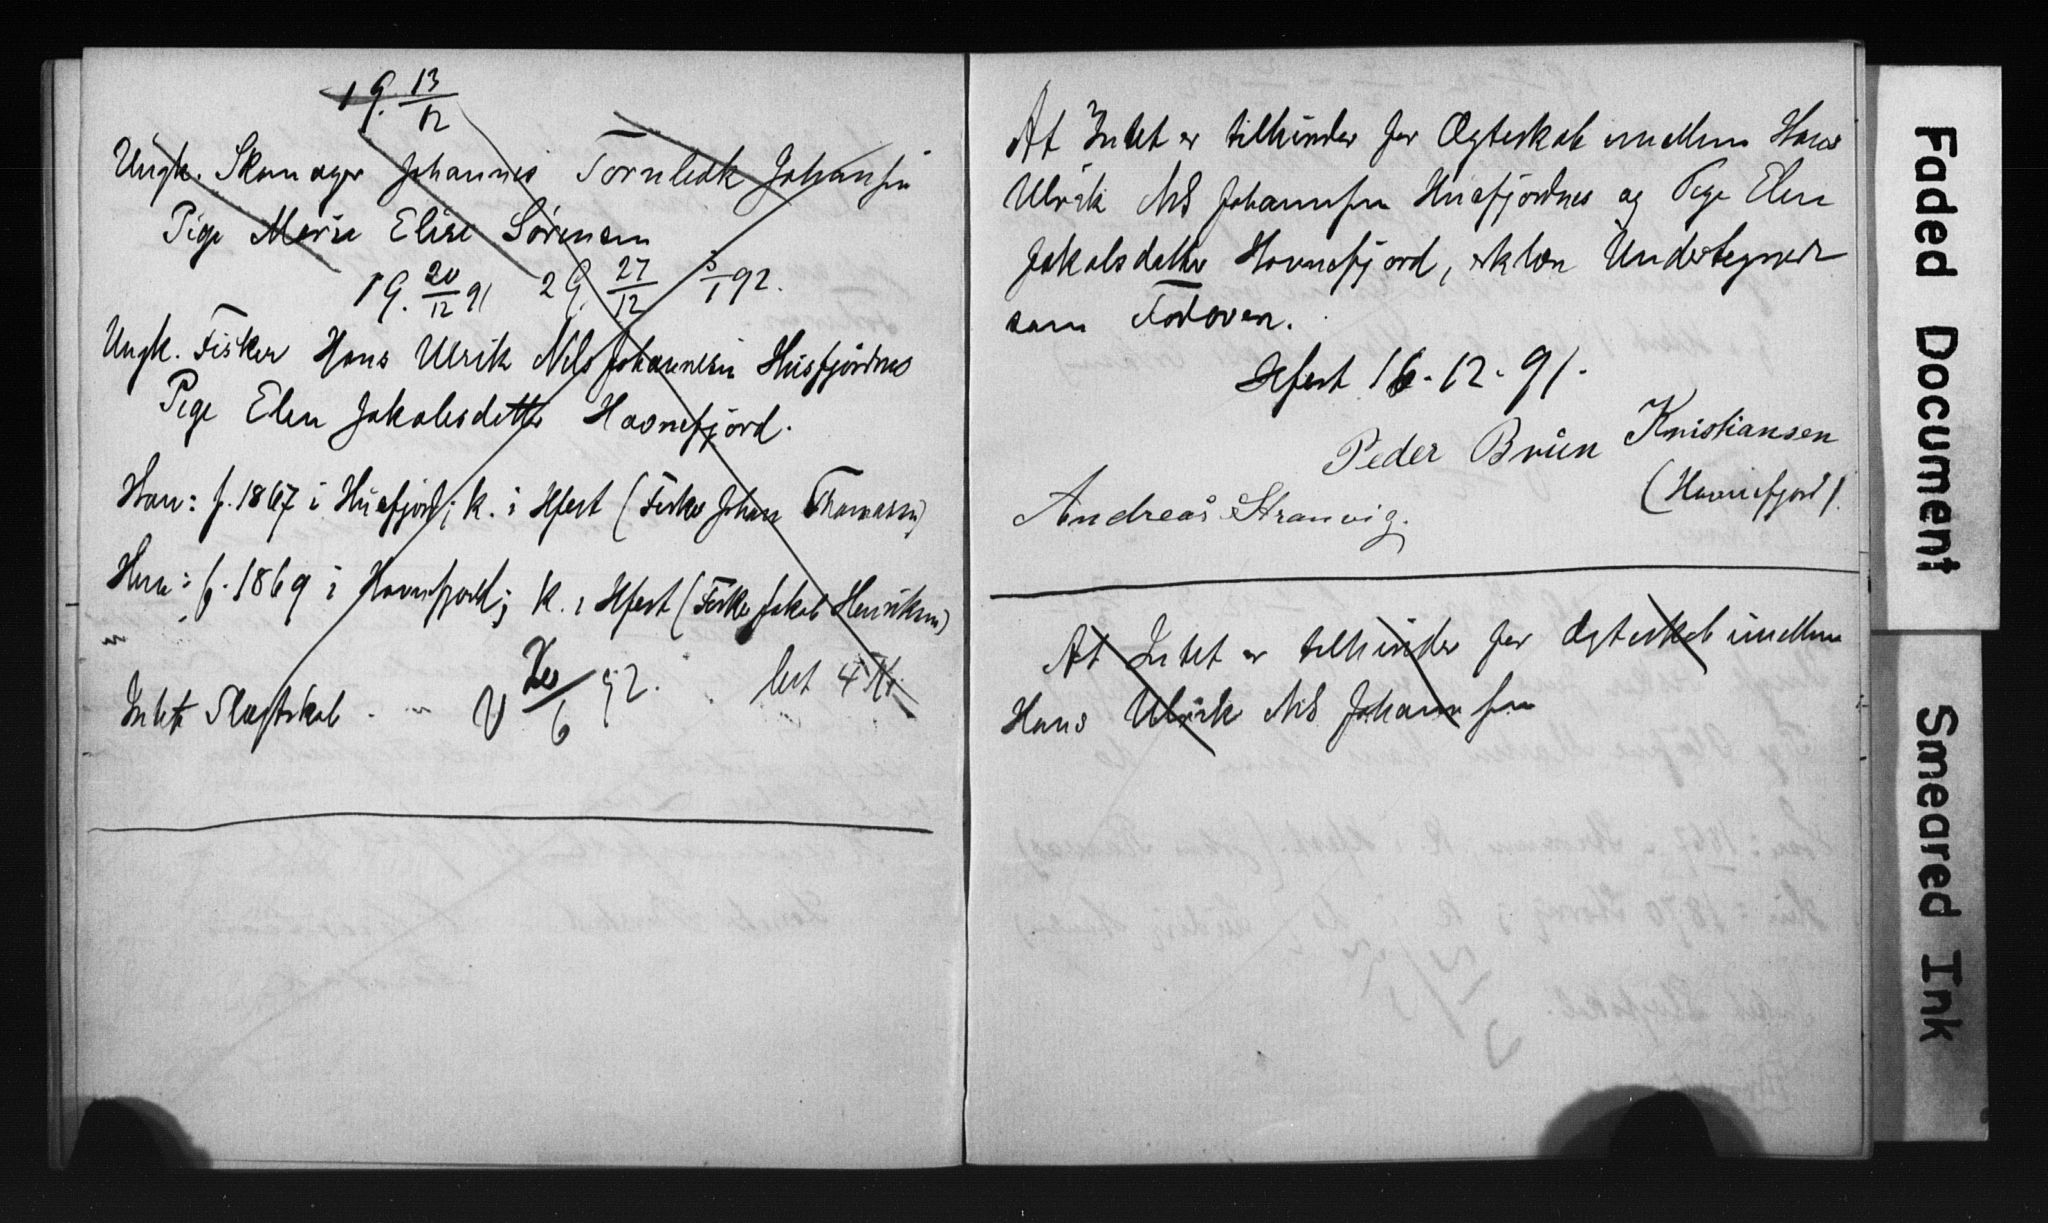 1 G. 13/12
Ungk. Skomager Johannes Tornbak Johansen
Pige Marie Elise Sørensen
1 G. 20/12 91 2 G. 27/12 3/1 92.
Ungk. Fisker Hans Ulrik Nils Johannesen Husfjordnes
Pige Elen Jakobsdatter Havnefjord.
Han: f. 1867 i Husfjord; k. i Hfest (Fisker Johan Thomassen)
Hun: f. 1869 i Havnefjord; k. i Hfest (Fisker Jakob Henriksen)
Intet Slægtskab. V /6 92. bet 4 Kr.
At Intet er tilhinder for Ægteskab imellem Hans
Ulrik Nils Johannesen Husefjordnes og Pige Elen
Jakobsdatter Havnefjord, erklære Undertegnede
som Forlovere.
Hfest 16-12-91.
Peder Brüen Kristiansen
(Havnefjord).
Andreas Stranvig.
At Intet er tilhinder for Ægteskab imellem
Hans Ulrik Nils Johannesen
Faded Document
Smeared Ink